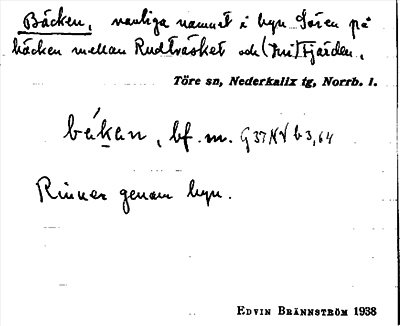 Bäcken, vanliga namnet i byn Sören på
bäcken mellan Rudträsket och (Inre) Fjärden.
Töre sn, Nederkalix tg, Norrb. l.
båkan, bf. m. G37NV b 3,64
Rinner genom byn.
EDVIN BRÄNNSTRÖM 1938